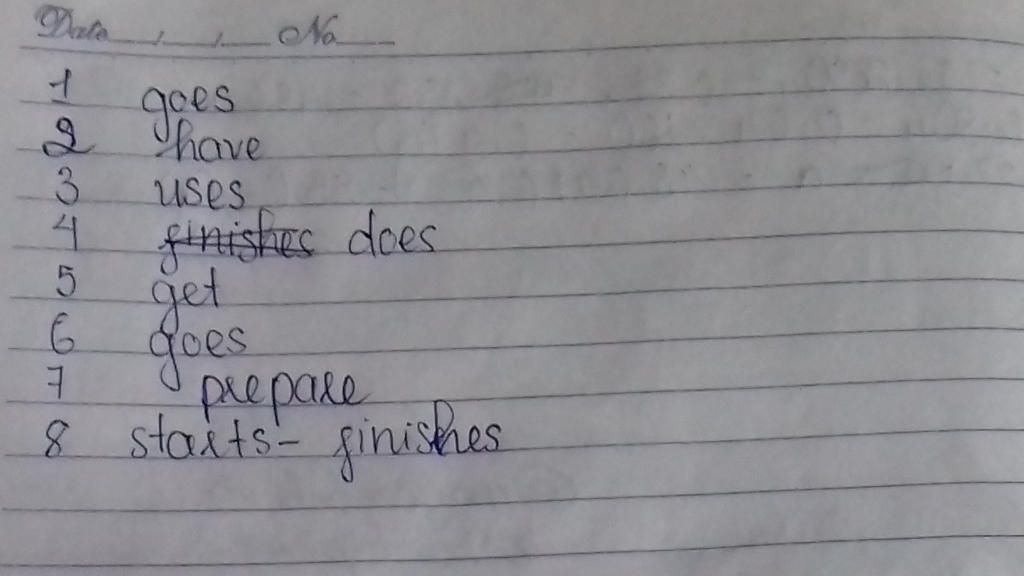 Date , , No
1 goes
2 have
3 uses
4 finishes does
5 get
6 goes
7 prepare
8 starts - finishes